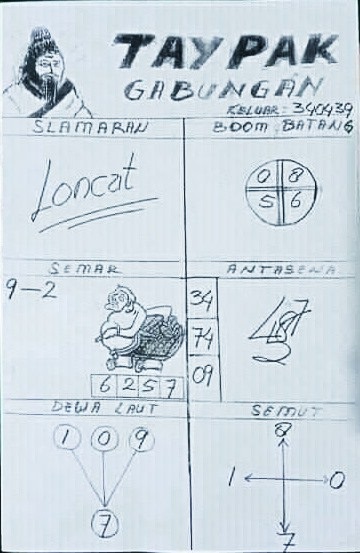 TAYPAK
GABUNGAN
KELUAR: 340439
SLAMARAN
BOOM BATANG
Loncat
0 8
5 6
SEMAR
ANTASENA
9-2
34
74
09
6 2 5 7
DEWA LAUT
SEMUT
1 0 9
7
8
1 0
7